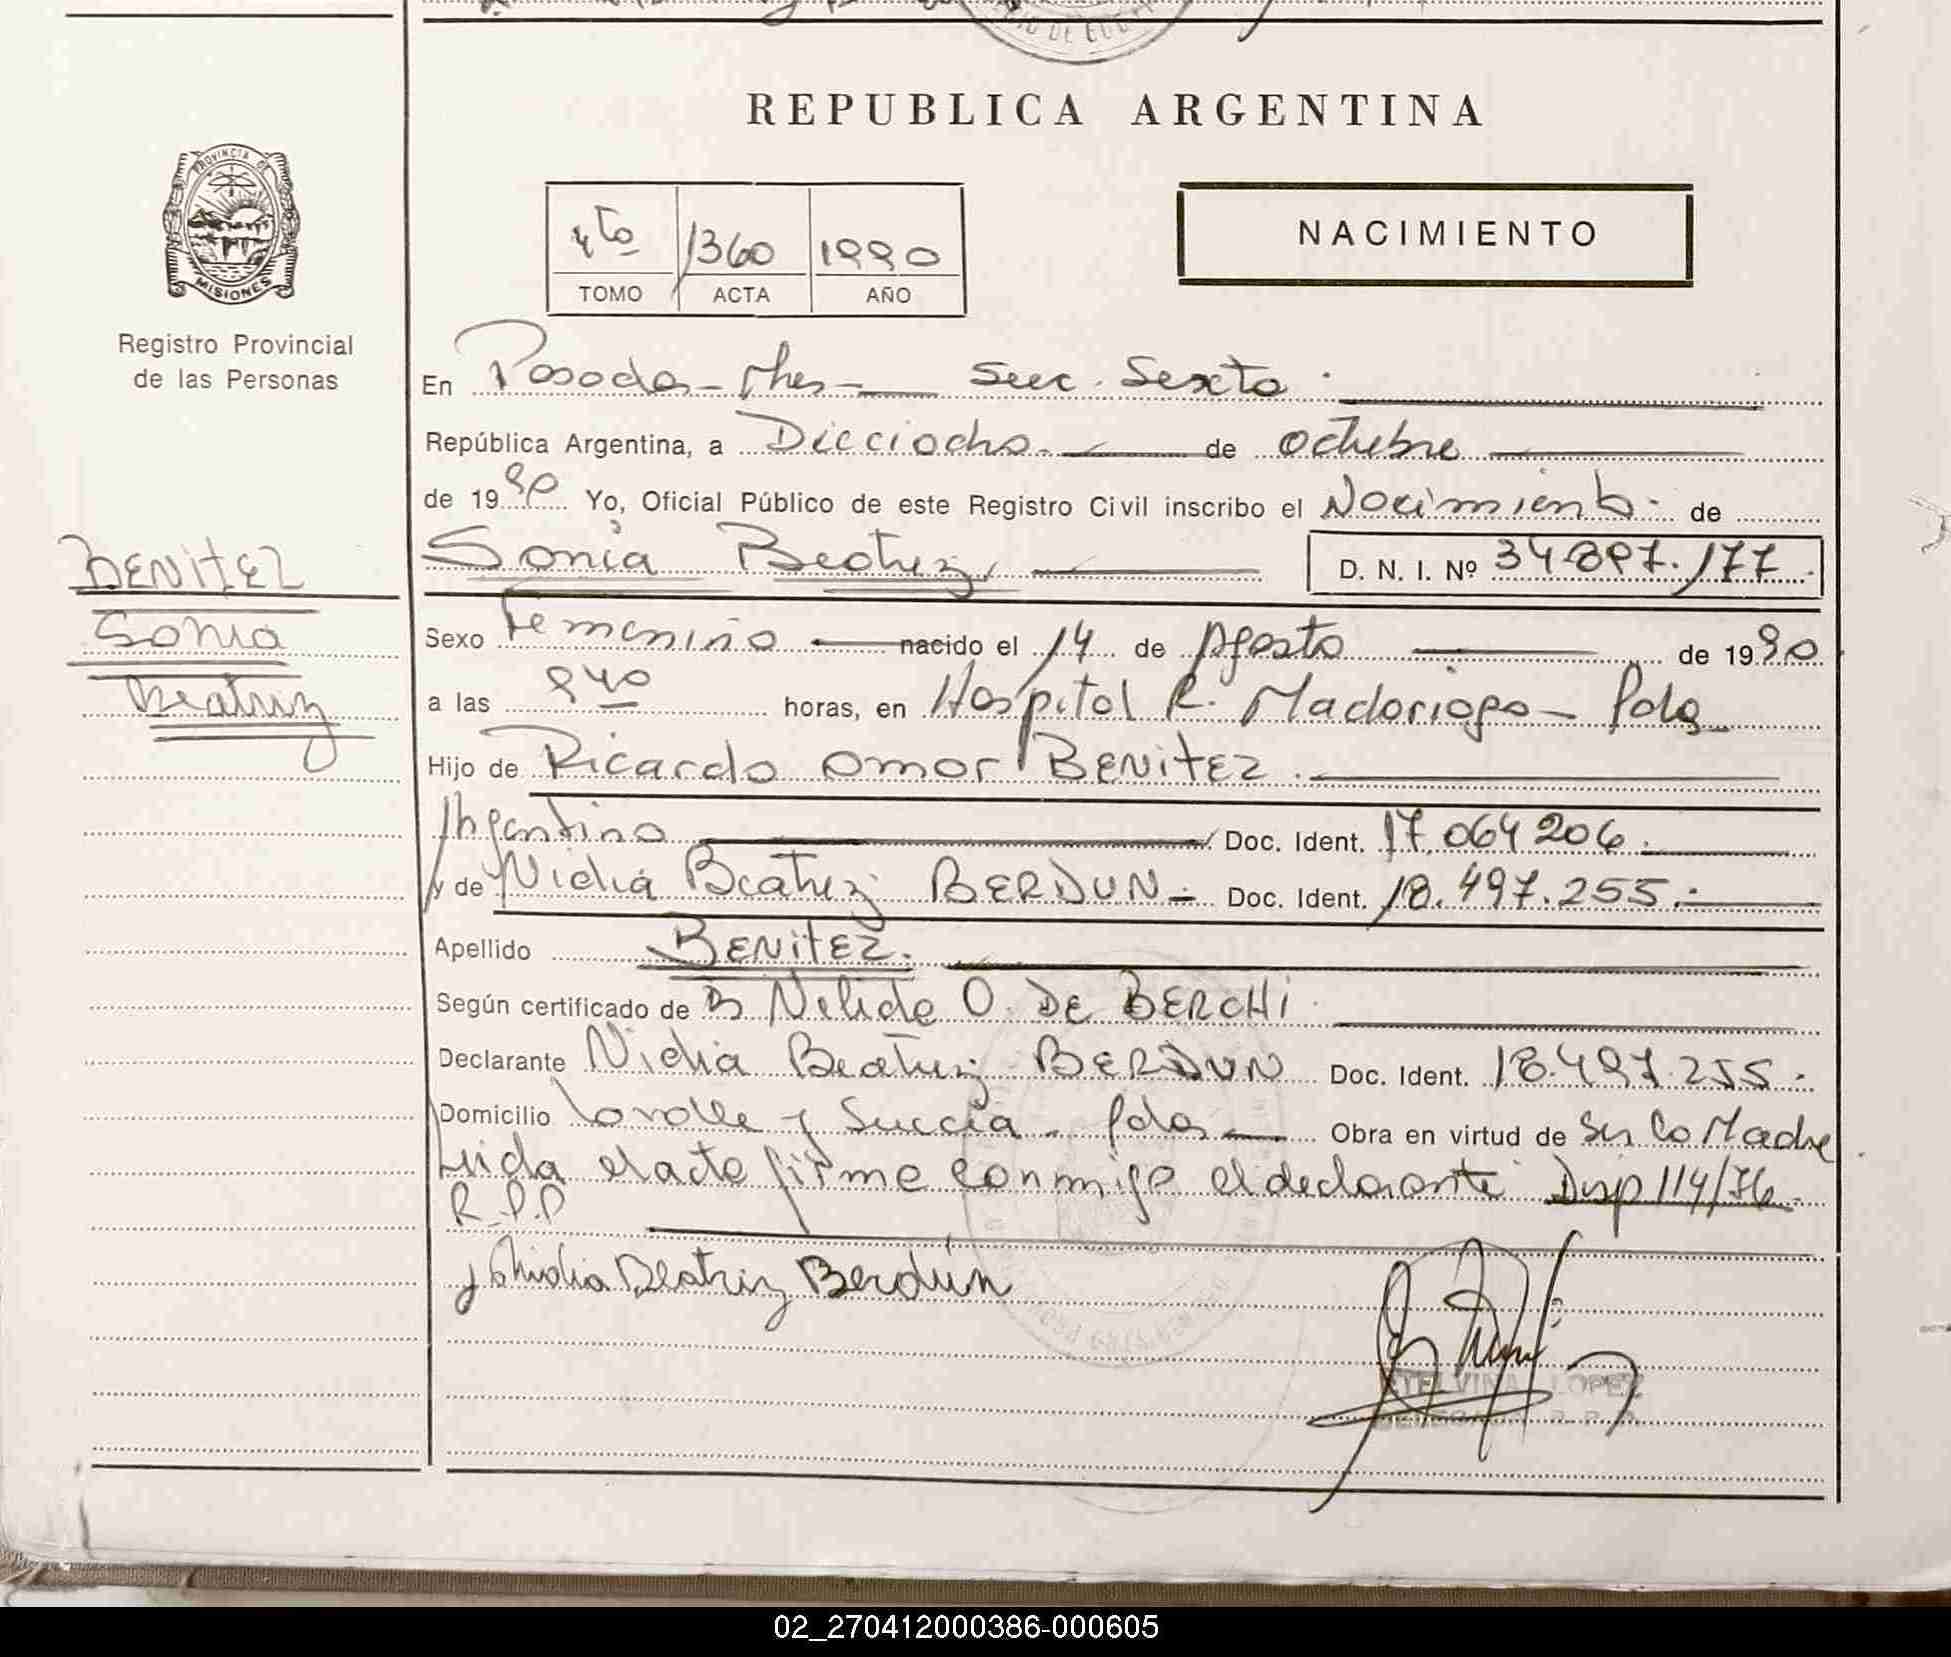 REPUBLICA ARGENTINA
PROVINCIA DE
MISIONES
Registro Provincial
de las Personas
4to 1360 1990
TOMO ACTA AÑO
NACIMIENTO
En Posadas - Mnes - Secc. Sexta.
República Argentina, a Dieciocho de octubre
de 1990 Yo, Oficial Público de este Registro Civil inscribo el Nacimiento de
Sonia Beatriz D. N. I. Nº 34.897.177
BENITEZ
Sonia
Beatriz
Sexo Femenino nacido el 14 de Agosto de 1990
a las 940 horas, en Hospital R. Madariaga - Pdas
Hijo de Ricardo Omar BENITEZ.
Argentino Doc. Ident. 17.064206.
y de Nidia Beatriz BERDUN - Doc. Ident. 18.497.255.-
Apellido BENITEZ.
Según certificado de Nelida O. DE BERCHI
Declarante Nidia Beatriz BERDUN Doc. Ident. 18.497.255.
Domicilio Lavalle y Suecia - Pdas Obra en virtud de Madre
Leida el acta firma conmigo el declarante Disp 114/76
R.P.P
Nidia Beatriz Berdún
STELVINA LOPEZ
02_270412000386-000605